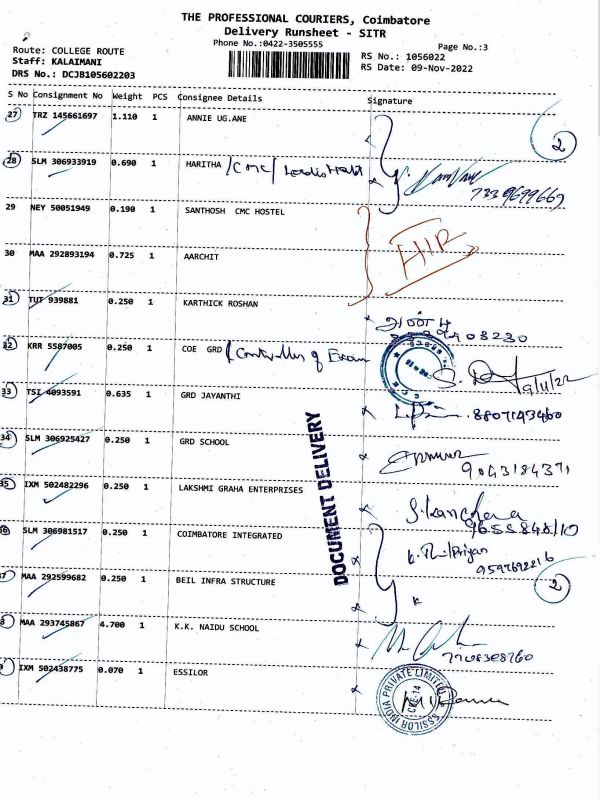 THE PROFESSIONAL COURIERS, Coimbatore
Delivery Runsheet - SITR
Phone No.:0422-3505555
Page No.:3
Route: COLLEGE ROUTE
Staff: KALAIMANI
DRS No.: DCJB105602203
RS No.: 1056022
RS Date: 09-Nov-2022
S No Consignment No Weight PCS Consignee Details Signature
27 TRZ 145661697 1.110 1 ANNIE UG.ANE
2
28 SLM 306933919 0.690 1 HARITHA /CMC/
7339699669
29 NEY 50051949 0.190 1 SANTHOSH CMC HOSTEL
30 MAA 292893194 0.725 1 AARCHIT
31 TUT 939881 0.250 1 KARTHICK ROSHAN
32 KRR 5587005 0.250 1 COE GRD (Controller of Exam
33 TSI 4093591 0.635 1 GRD JAYANTHI
8807143460
34 SLM 306925427 0.250 1 GRD SCHOOL
9043184371
DOCUMENT DELIVERY
35 IXM 502482296 0.250 1 LAKSHMI GRAHA ENTERPRISES
SLM 306981517 0.250 1 COIMBATORE INTEGRATED
MAA 292599682 0.250 1 BEIL INFRA STRUCTURE
2
MAA 293745867 4.700 1 K.K. NAIDU SCHOOL
7708308760
IXM 502438775 0.070 1 ESSILOR
ESSILOR INDIA PRIVATE LIMITED